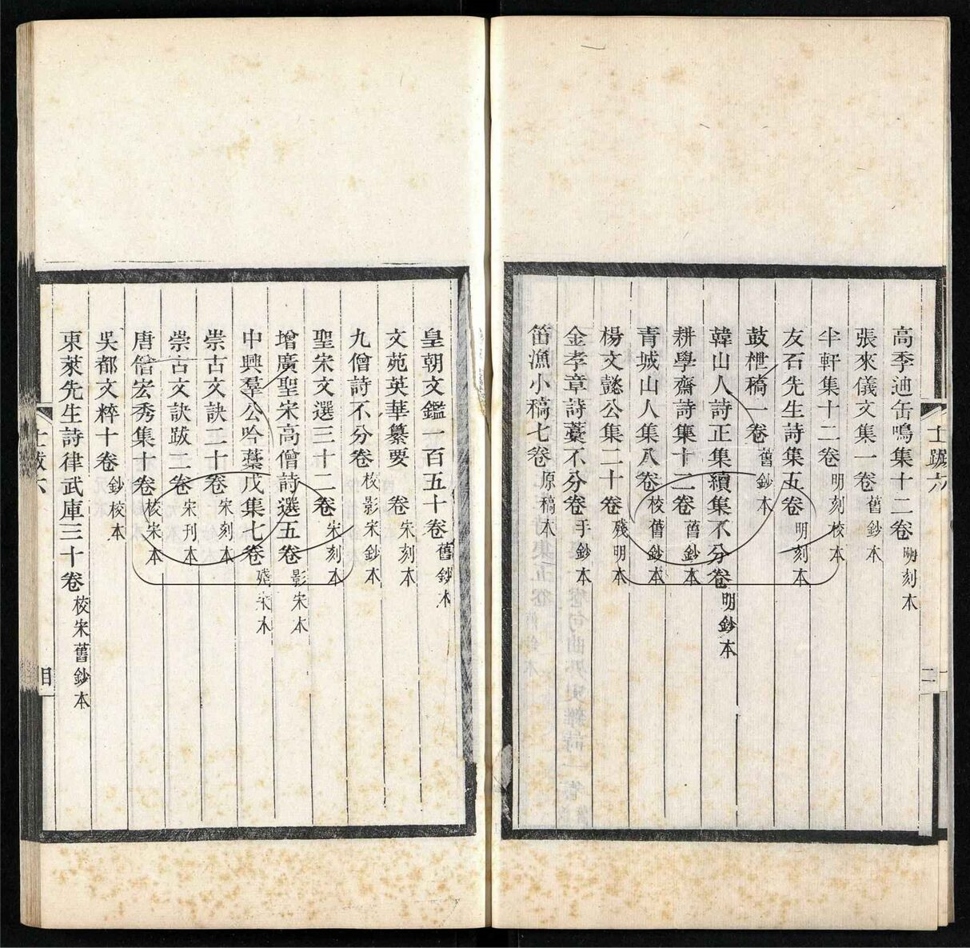 高季迪缶鳴集十二卷 明刻本
張來儀文集一卷 舊鈔本
半軒集十二卷 明刻校本
友石先生詩集五卷 明刻本
鼓枻稿一卷 舊鈔本
韓山人詩正集續集不分卷 明鈔本
耕學齋詩集十二卷 舊鈔本
青城山人集八卷 校舊鈔本
楊文懿公集二十卷 殘明本
金孝章詩藁不分卷 手鈔本
笛漁小稿七卷 原稿本
士跋六
二
皇朝文鑑一百五十卷 舊鈔本
文苑英華纂要 卷 宋刻本
九僧詩不分卷 校影宋鈔本
聖宋文選三十二卷 宋刻本
增廣聖宋高僧詩選五卷 影宋本
中興羣公吟藁戊集七卷 殘宋本
崇古文訣二十卷 宋刻本
崇古文訣跋二卷 宋刊本
唐僧宏秀集十卷 校宋本
吳都文粹十卷 鈔校本
東萊先生詩律武庫三十卷 校宋舊鈔本
士跋六
目